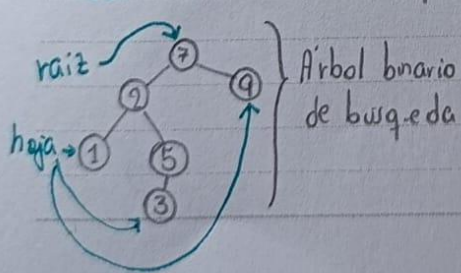 raiz
7
2
9
hoja
1
5
3
Árbol binario
de busqueda